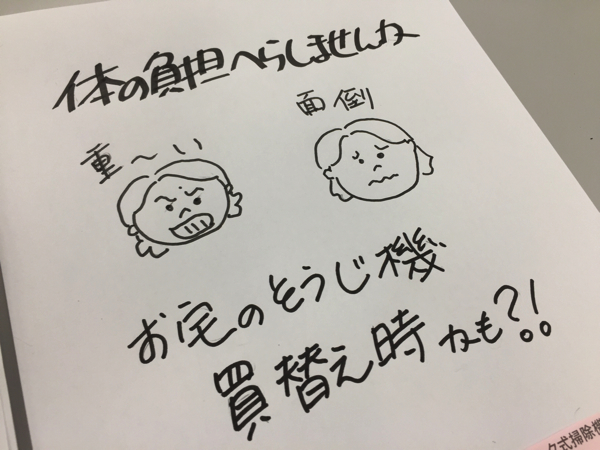 体の負担へらしませんか
面倒
重～い
お宅のそうじ機
買替え時かも?!
ク式掃除機